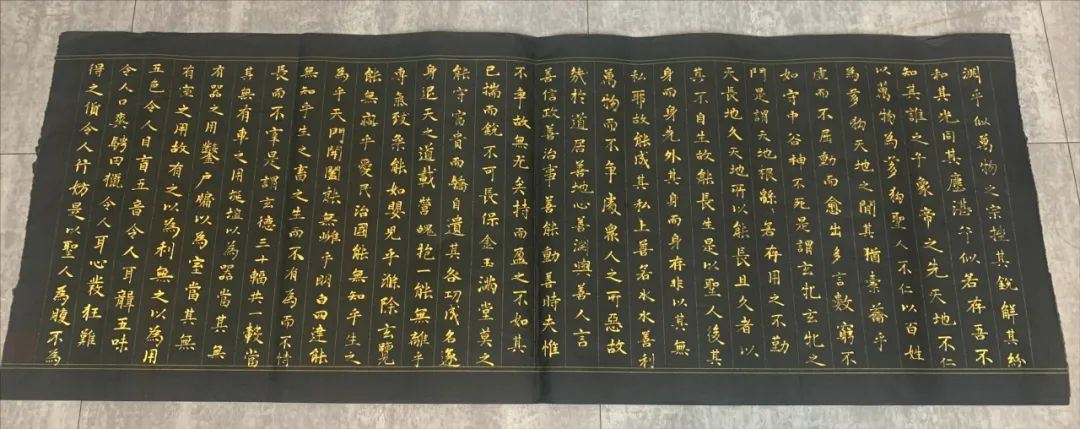 淵乎似萬物之宗挫其銳解其紛
和其光同其塵湛兮似若存吾不
知其誰之子象帝之先天地不仁
以萬物為芻狗聖人不仁以百姓
為芻狗天地之間其猶橐籥乎
虛而不屈動而愈出多言數窮不
如守中谷神不死是謂玄牝玄牝之
門是謂天地根綿〻若存用之不勤
天長地久天地所以能長且久者以
其不自生故能長生是以聖人後其
身而身先外其身而身存非以其無
私耶故能成其私上善若水水善利
萬物而不爭處衆人之所惡故
幾於道居善地心善淵與善人言
善信政善治事善能動善時夫惟
不爭故無尤矣持而盈之不如其
已揣而銳不可長保金玉滿堂莫之
能守富貴而驕自遺其咎功成名遂
身退天之道載營魄抱一能無離乎
專氣致柔能如嬰兒乎滌除玄覽
能無疵乎愛民治國能無知乎生之
為乎天門開闔能無雌乎明白四達能
無知乎生之畜之生而不有為而不恃
長而不宰是謂玄德三十輻共一轂當
其無有車之用埏埴以為器當其無
有器之用鑿戶牖以為室當其無
有室之用故有之以為利無之以為用
五色令人目盲五音令人耳聾五味
令人口爽騁田獵令人耳心發狂難
得之貨令人行妨是以聖人為腹不為